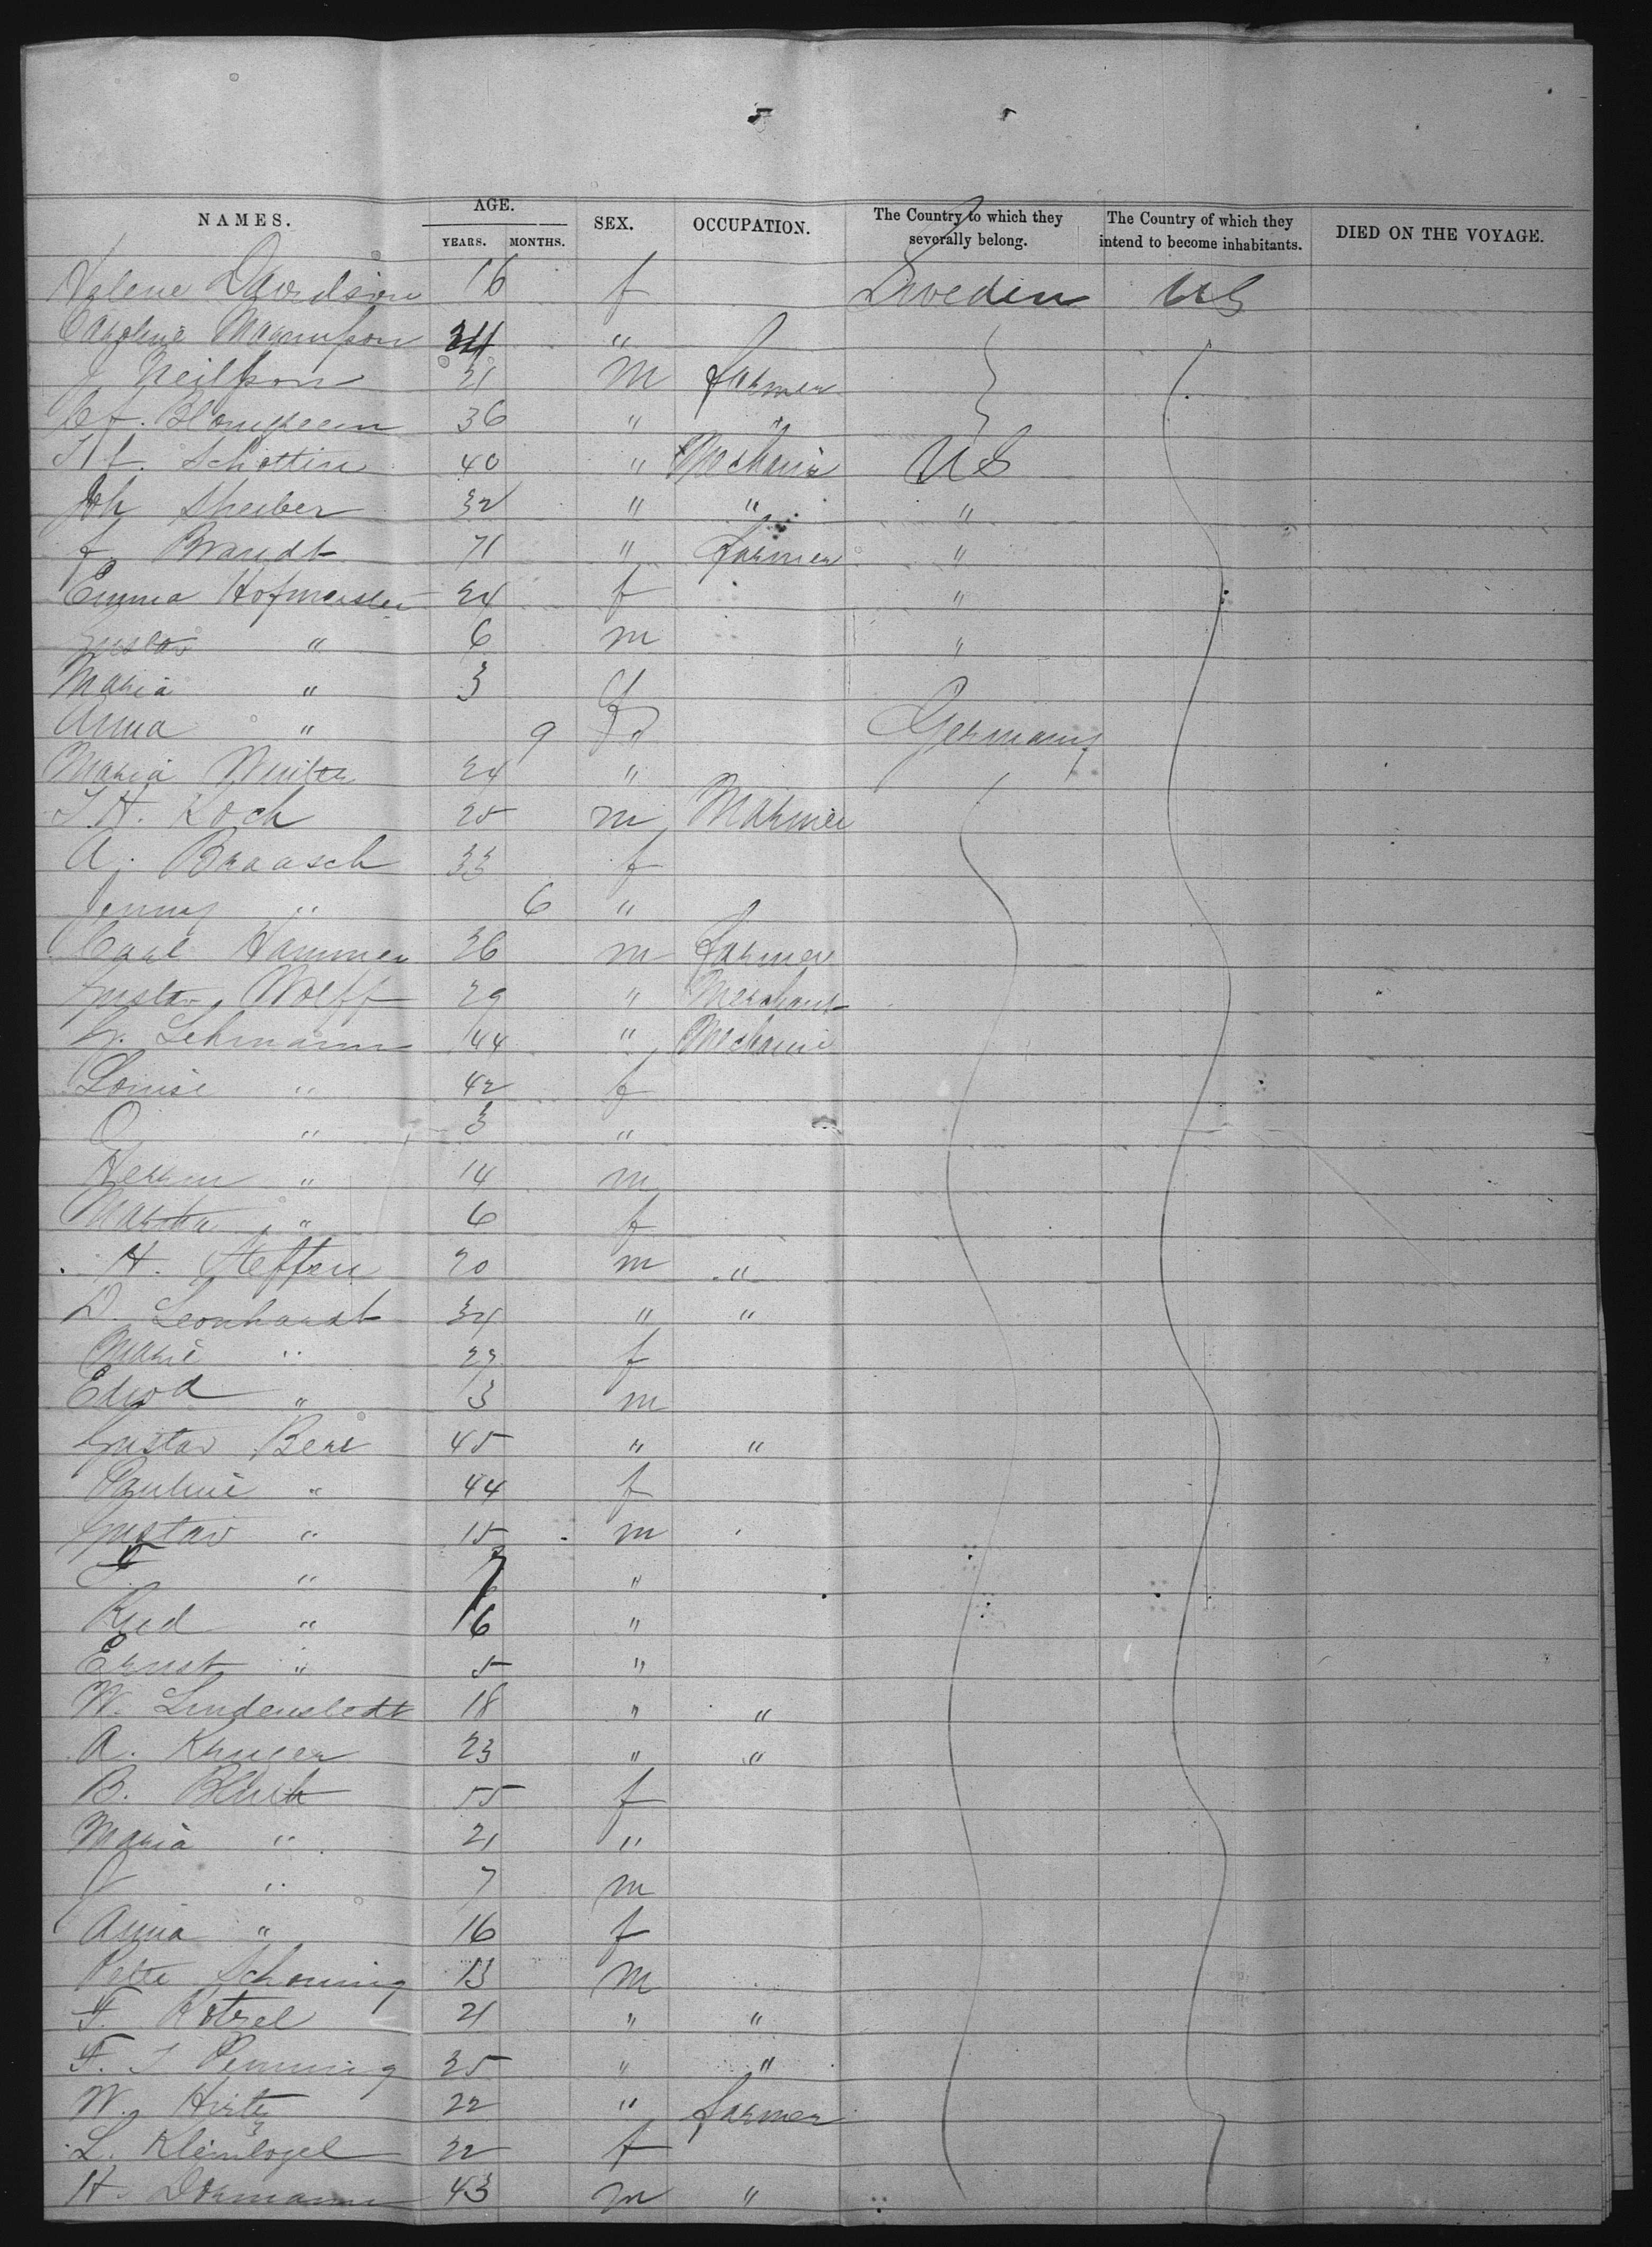 5
NAMES. AGE. YEARS. MONTHS. SEX. OCCUPATION. The Country to which they severally belong. The Country of which they intend to become inhabitants. DIED ON THE VOYAGE.
Helene Davidson 16 f Sweden US
Caroline Magnusson 34 "
J Neilsson 21 m farmer
36 " "
Schottin 40 " Mechanic US
Joh Sheiber 32 " " "
f. Brandt 71 " farmer "
Emma Hofmeister 24 f "
Gustav " 6 m "
Maria " 3 f
Anna " 9 " Germany
Maria 24 "
J. H. Koch 25 m Mariner
A. Braasch 33 f
Jenny " 6 "
Carl Hammer 26 m farmer
Gustav Wolff 29 " Merchant
Lehmann 44 " Mechanic
Louise " 42 f
O " 3 "
Herrm " 14 m
Martha " 6 f
H. Steffen 20 m "
D. Leonhardt 34 " "
Marie " 27 f
Edwd " 3 m
Gustav Bere 45 " "
Pauline " 44 f
Gustav " 15 m
" 7 "
Rud " 16 "
Ernst " 5 "
W. Lindenstedt 18 " "
A. Kruger 23 " "
B. 55 f
Maria " 21 "
J " 7 m
Anna " 16 f
Peter Schoning 13 m
F. Rotzel 21 " "
F. J Penning 25 " "
W. Hirtz 22 " farmer
L. Kleinlogel 22 f
H. Dormann 43 m "